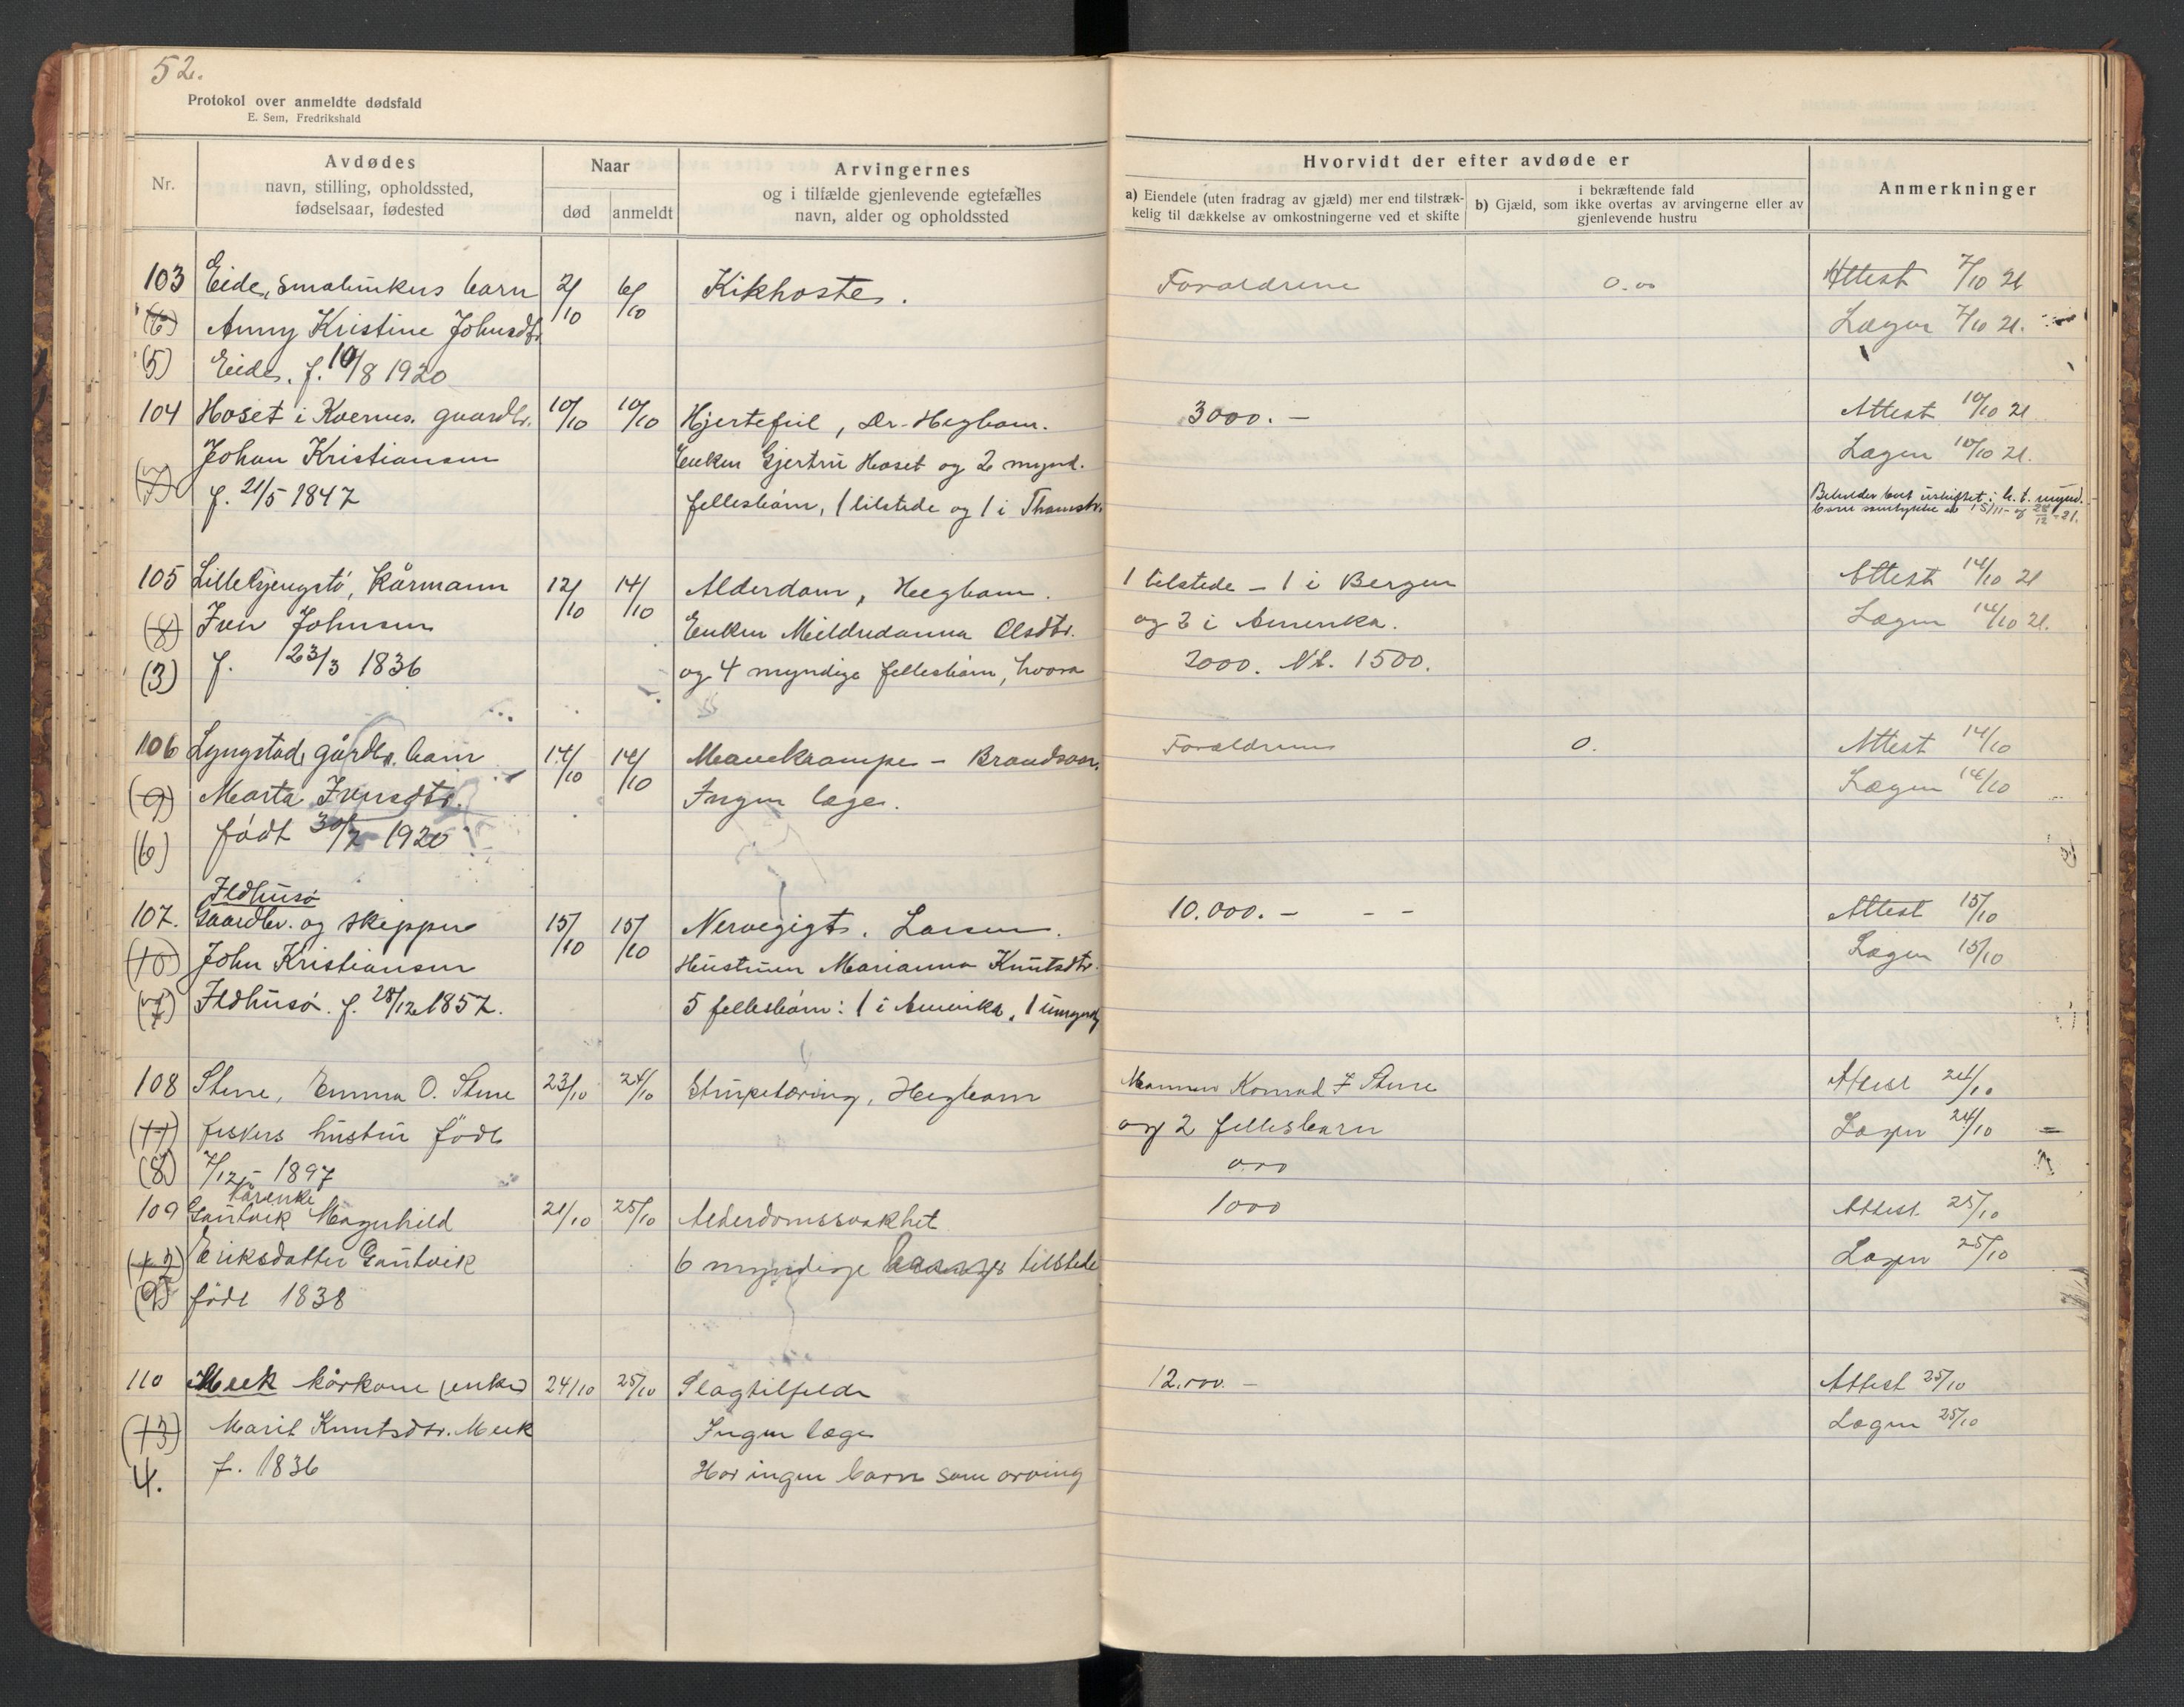 52.
Protokol over anmeldte dødsfald
E. Sem, Fredrikshald
Nr.
Avdødes
navn, stilling, opholdssted,
fødselsaar, fødested
Naar
død
anmeldt
Arvingernes
og i tilfælde gjenlevende egtefælles
navn, alder og opholdssted
Hvorvidt der efter avdøde er
a) Eiendele (uten fradrag av gjæld) mer end tilstræk-
kelig til dækkelse av omkostningerne ved et skifte
i bekræftende fald
b) Gjæld, som ikke overtas av arvingerne eller av
gjenlevende hustru
Anmerkninger
103 Eide, småbrukers barn 2/10 6/10 Kikhoste. Forældrene 0.00 Attest 7/10 21
(6) Anny Kristine Johnsdtr. Lægen 7/10 21.
(5) Eide. f. 10/8 1920
104 Hoset i Kvernes. gaardbr. 10/10 10/10 Hjertefeil, Dr. Hegbom. 3000.- Attest 10/10 21
Johan Kristiansen Enken Gjertru Hoset og 2 mynd. Lægen 10/10 21.
(7) f. 21/5 1847 fellesbarn, 1 tilstede og 1 i Beholder boet uskiftet i h. t. mynd.
barns samtykke 15/11- og 28/12-21.
105 Lille kårmann 12/10 14/10 Alderdom, Hegbom. 1 tilstede - 1 i Bergen Attest 14/10 21
(8) Iver Johnsen Enken Olsdtr. og 2 i Amerika. Lægen 14/10 21.
(3) f. 23/3 1836 og 4 myndige fellesbarn, hvorav 2000. Nt. 1500.
106 Lyngstad, gårdbr. barn 14/10 14/10 Mavekrampe - Forældrene 0. Attest 14/10
(9) Marta Iversdtr. Ingen læge. Lægen 14/10
(6) født 30/7 1920
Ildhusø
107. Gaardbr. og skipper 15/10 15/10 Nervegigt. Larsen. 10.000.- - - Attest 15/10
(10) John Kristiansen Hustruen Marianna Knutsdtr. Lægen 15/10
(7) Ildhusø. f. 28/12 1857. 5 fellesbarn: 1 i Amerika, 1 umyndig
108 Stene, Emma O. Stene 23/10 24/10 Strupetæring, Hegbom Mannen Konrad J Stene Attest 24/10
(11) fiskers hustru født og 2 fellesbarn Lægen 24/10
(8) 7/12 - 1897 0.00
kårenke
109 Gautvik Magnhild 21/10 25/10 Alderdomssvakhet 1000 Attest 25/10
(12) Eriksdatter Gautvik 6 myndige tilstede Lægen 25/10
(9) født 1838
110 Meek kårkone (enke) 24/10 25/10 Slagtilfelde 12.000.- Attest 25/10
(13) Marit Knutsdtr. Meek Ingen læge Lægen 25/10
4. f. 1836 Har ingen barn som arving